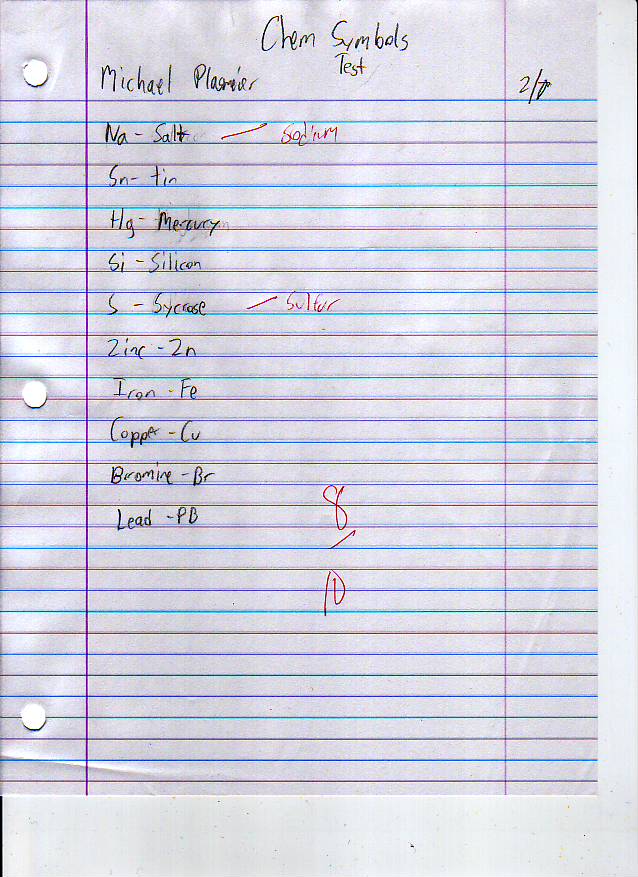 Chem Symbols
Test
Michael Plasmeier
Na - Salt - Sodium
Sn - tin
Hg - Mercury
Si - Silicon
S - Sycrose - Sulfur
Zinc - Zn
Iron - Fe
Copper - Cu
Bromine - Br
Lead - PB
8
/
10